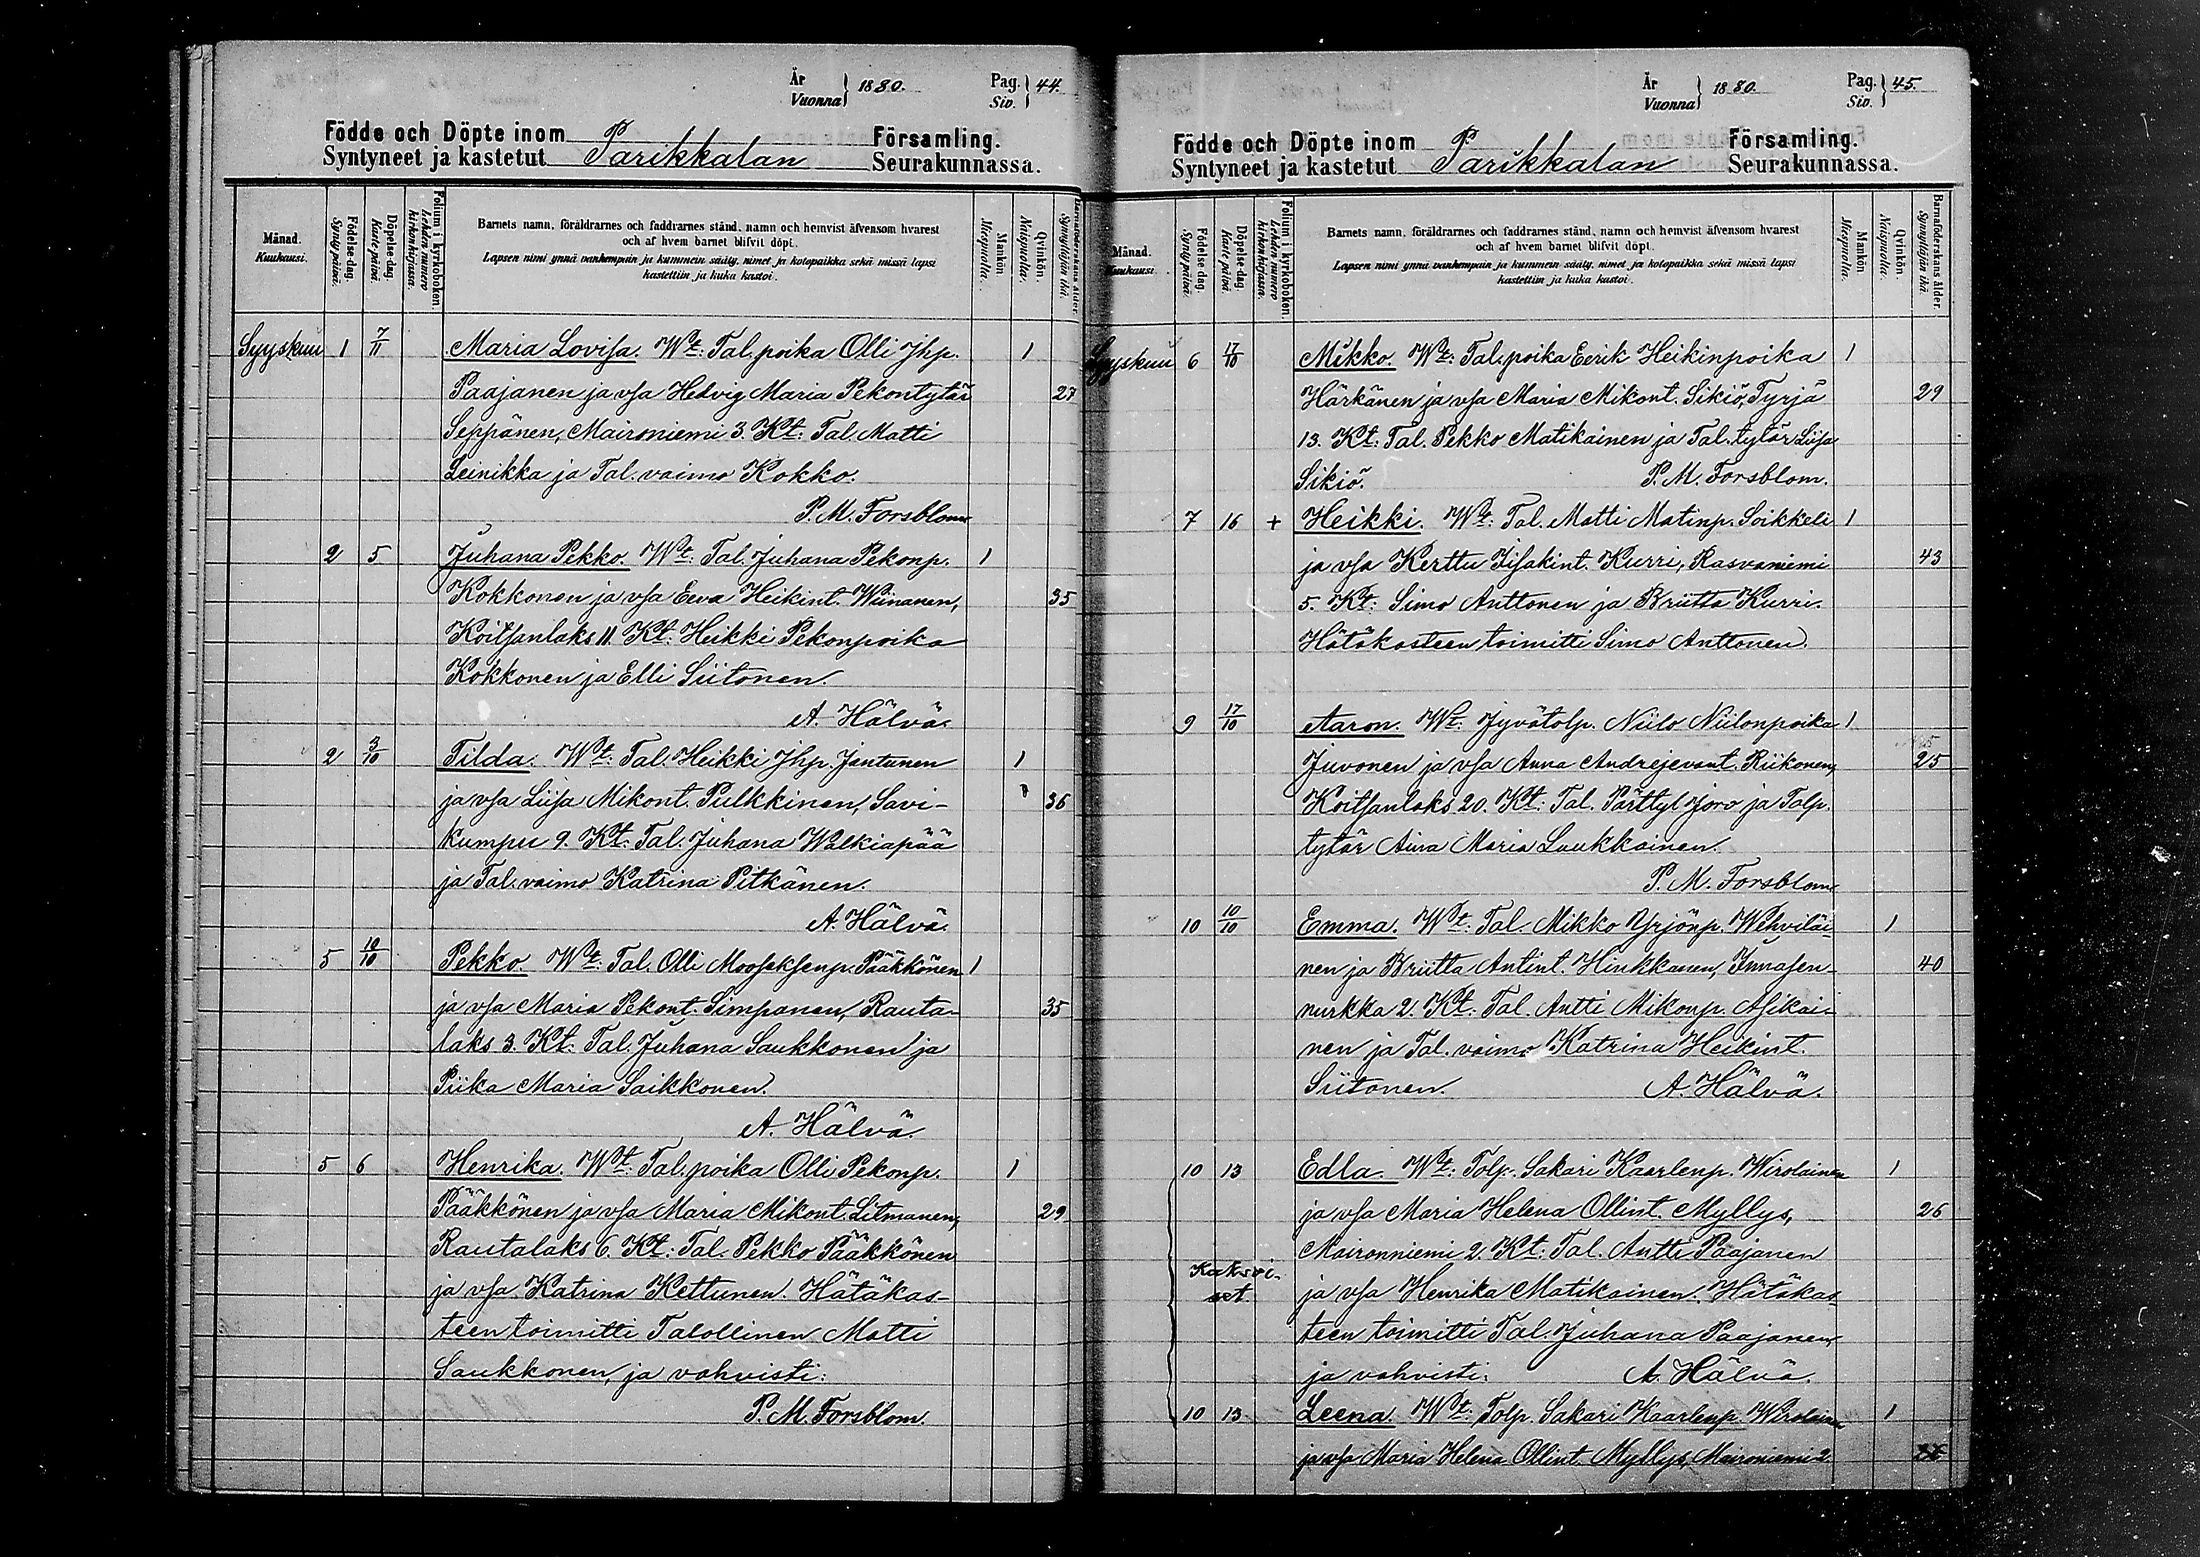 År
Vuonna 1880. Pag. Siv. 44.
Födde och Döpte inom Parikkalan Församling.
Syntyneet ja kastetut Seurakunnassa.
Månad. Kuukausi.
Födelse-dag. Synty päivä.
Döpelse-dag. Kaste päivä.
Folium i kyrkoboken. Lehden numero kirkonkirjassa.
Barnets namn, föräldrarnes och faddrarnes stånd, namn och hemvist äfvensom hvarest
och af hvem barnet blifvit döpt.
Lapsen nimi ynnä vanhempain ja kummein sääty, nimet ja kotopaikka sekä missä lapsi
kastettiin ja kuka kastoi.
Mankön Miespuolia.
Qvinkön. Naispuolia.
Barnaföderskans ålder. Synnyttäjän ikä.
Syyskuu 1 7/11 Maria Lovisa. Wt: Tal. poika Olli Jhp. 1
Paajanen ja vsa Hedvig Maria Pekontytär 27
Seppänen, Maironiemi 3. Kt: Tal. Matti
Leinikka ja Tal. vaimo Kokko.
P. M. Forsblom
2 5 Juhana Pekko. Wt: Tal. Juhana Pekonp. 1
Kokkonen ja vsa Eeva Heikint. Wiinanen, 35
Koitsanlaks 11. Kt: Heikki Pekonpoika
Kokkonen ja Elli Siitonen.
A. Hälvä.
2 3/10 Tilda. Wt: Tal. Heikki Jhp. Jantunen 1
ja vsa Liisa Mikont. Pulkkinen, Savi- 36
kumpu 9. Kt: Tal. Juhana Walkiapää
ja Tal. vaimo Katrina Pitkänen.
A. Hälvä.
5 10/10 Pekko. Wt: Tal. Olli Mooseksenp. Pääkkönen 1
ja vsa Maria Pekont. Simpanen, Rauta- 35
laks 3. Kt: Tal. Juhana Saukkonen ja
Piika Maria Saikkonen.
A. Hälvä.
5 6 Henrika. Wt: Tal. poika Olli Pekonp. 1
Pääkkönen ja vsa Maria Mikont. Litmanen, 29
Rautalaks 6. Kt: Tal. Pekko Pääkkönen
ja vsa Katrina Kettunen. Hätäkas-
teen toimitti Talollinen Matti
Saukkonen, ja vahvisti:
P. M. Forsblom.
År
Vuonna 1880. Pag. Siv. 45.
Födde och Döpte inom Parikkalan Församling.
Syntyneet ja kastetut Seurakunnassa.
Månad. Kuukausi.
Födelse-dag. Synty päivä.
Döpelse-dag. Kaste päivä.
Folium i kyrkoboken. Lehden numero kirkonkirjassa.
Barnets namn, föräldrarnes och faddrarnes stånd, namn och hemvist äfvensom hvarest
och af hvem barnet blifvit döpt.
Lapsen nimi ynnä vanhempain ja kummein sääty, nimet ja kotopaikka sekä missä lapsi
kastettiin ja kuka kastoi.
Mankön Miespuolia.
Qvinkön. Naispuolia.
Barnaföderskans ålder. Synnyttäjän ikä.
Syyskuu 6 17/10 Mikko. Wt: Tal. poika Eerik Heikinpoika 1
Härkänen ja vsa Maria Mikont. Sikiö, Tyrjä 29
13. Kt: Tal. Pekko Matikainen ja Tal. tytär Liisa
Sikiö. P. M. Forsblom.
7 16 + Heikki. Wt: Tal. Matti Matinp. Soikkeli 1
ja vsa Kerttu Iisakint. Kurri, Rasvaniemi 43
5. Kt: Simo Anttonen ja Briitta Kurri.
Hätäkasteen toimitti Simo Anttonen.
9 17/10 Aaron. Wt: Jyvätolp. Niilo Niilonpoika 1
Juvonen ja vsa Anna Andrejevant. Riikonen, 25
Koitsanlaks 20. Kt: Tal. Pärttyl Joro ja Tolp.
tytär Aina Maria Laukkainen.
P. M. Forsblom
10 10/10 Emma. Wt: Tal. Mikko Yrjönp. Wehviläi- 1
nen ja Briitta Antint. Hinkkanen, Innasen- 40
nurkka 2. Kt: Tal. Antti Mikonp. Asikai-
nen ja Tal. vaimo Katrina Heikint.
Siitonen. A. Hälvä.
10 13 Edla. Wt: Tolp. Sakari Kaarlenp. Wirolainen 1
ja vsa Maria Helena Ollint. Myllys, 26
Maironniemi 2. Kt: Tal. Antti Paajanen
Kaksoi-
set. ja vsa Henrika Matikainen. Hätäkas-
teen toimitti Tal. Juhana Paajanen,
ja vahvisti: A. Hälvä.
10 13 Leena. Wt: Tolp. Sakari Kaarlenp. Wirolainen 1
ja vsa Maria Helena Ollint. Myllys, Maironiemi 2